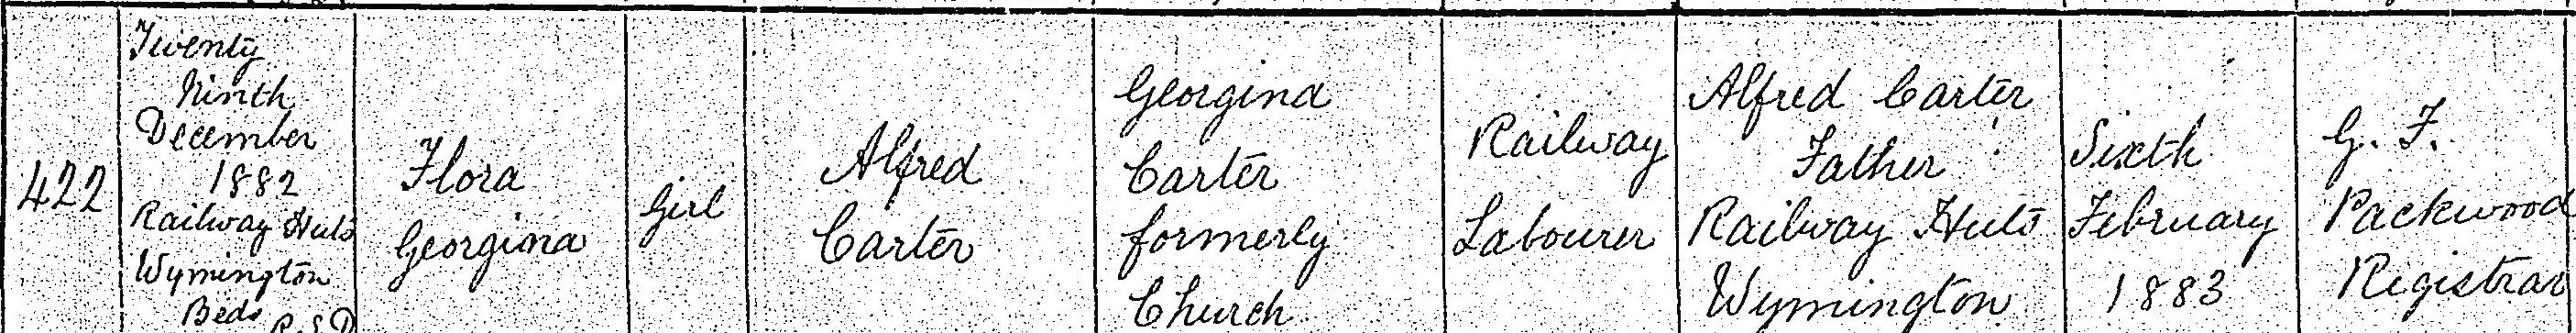 422
Twenty
Ninth
December
1882
Railway Huts
Wymington
Beds R.S.D
Flora
Georgina
Girl
Alfred
Carter
Georgina
Carter
formerly
Church
Railway
Labourer
Alfred Carter
Father
Railway Huts
Wymington
Sixth
February
1883
G. F.
Packwood
Registrar